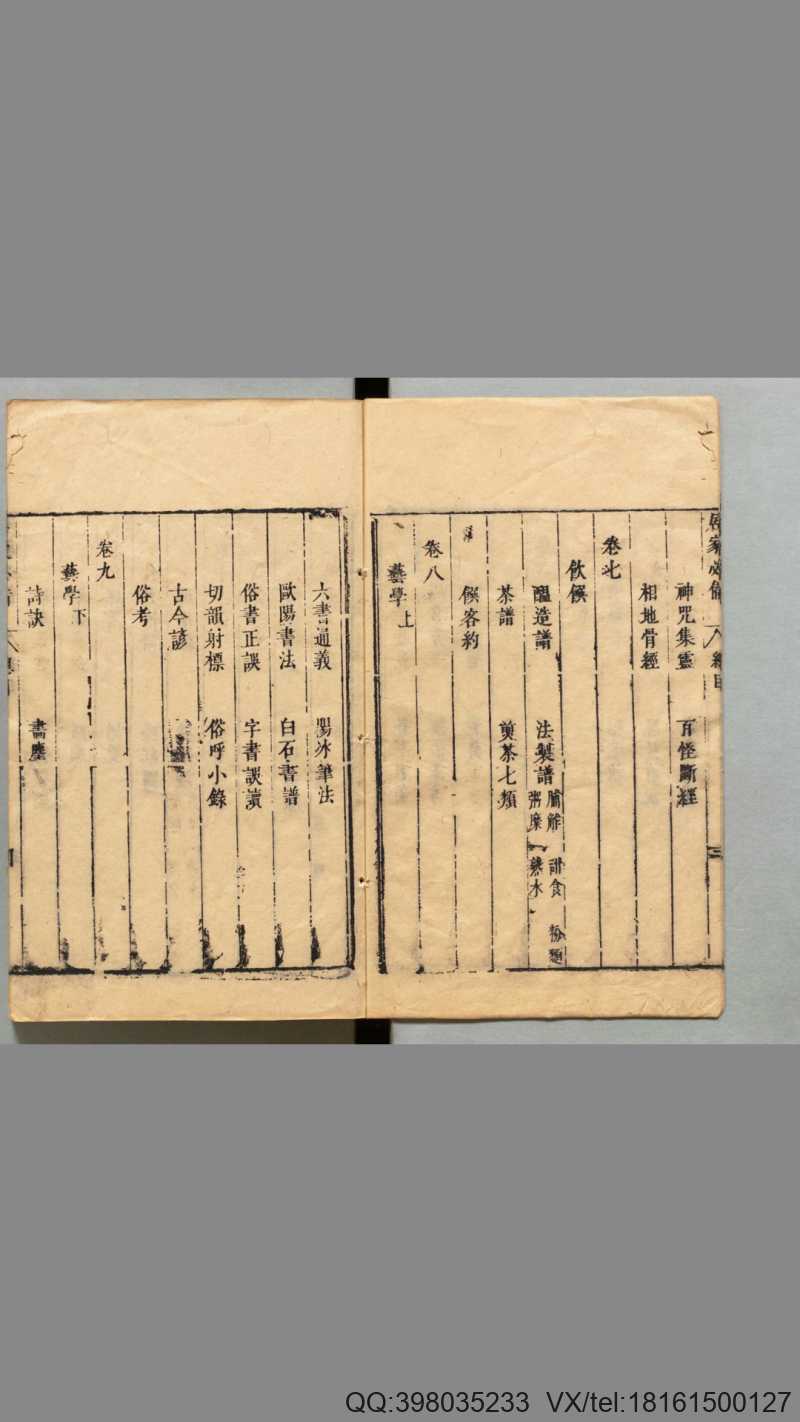 居家必備 總目 三
神咒集靈 百怪斷經
相地骨經
卷七
飲饌
醞造譜 法製譜 脯鮓 甜食 粉麵 粥糜 熟水
茶譜 煎茶七類
饌客約
卷八
藝學上
六書通義 陽冰筆法
歐陽書法 白石書譜
俗書正誤 字書誤讀
切韻射標 俗呼小錄
古今諺
俗考
卷九
藝學下
詩訣 書塵
QQ:398035233 VX/tel:18161500127